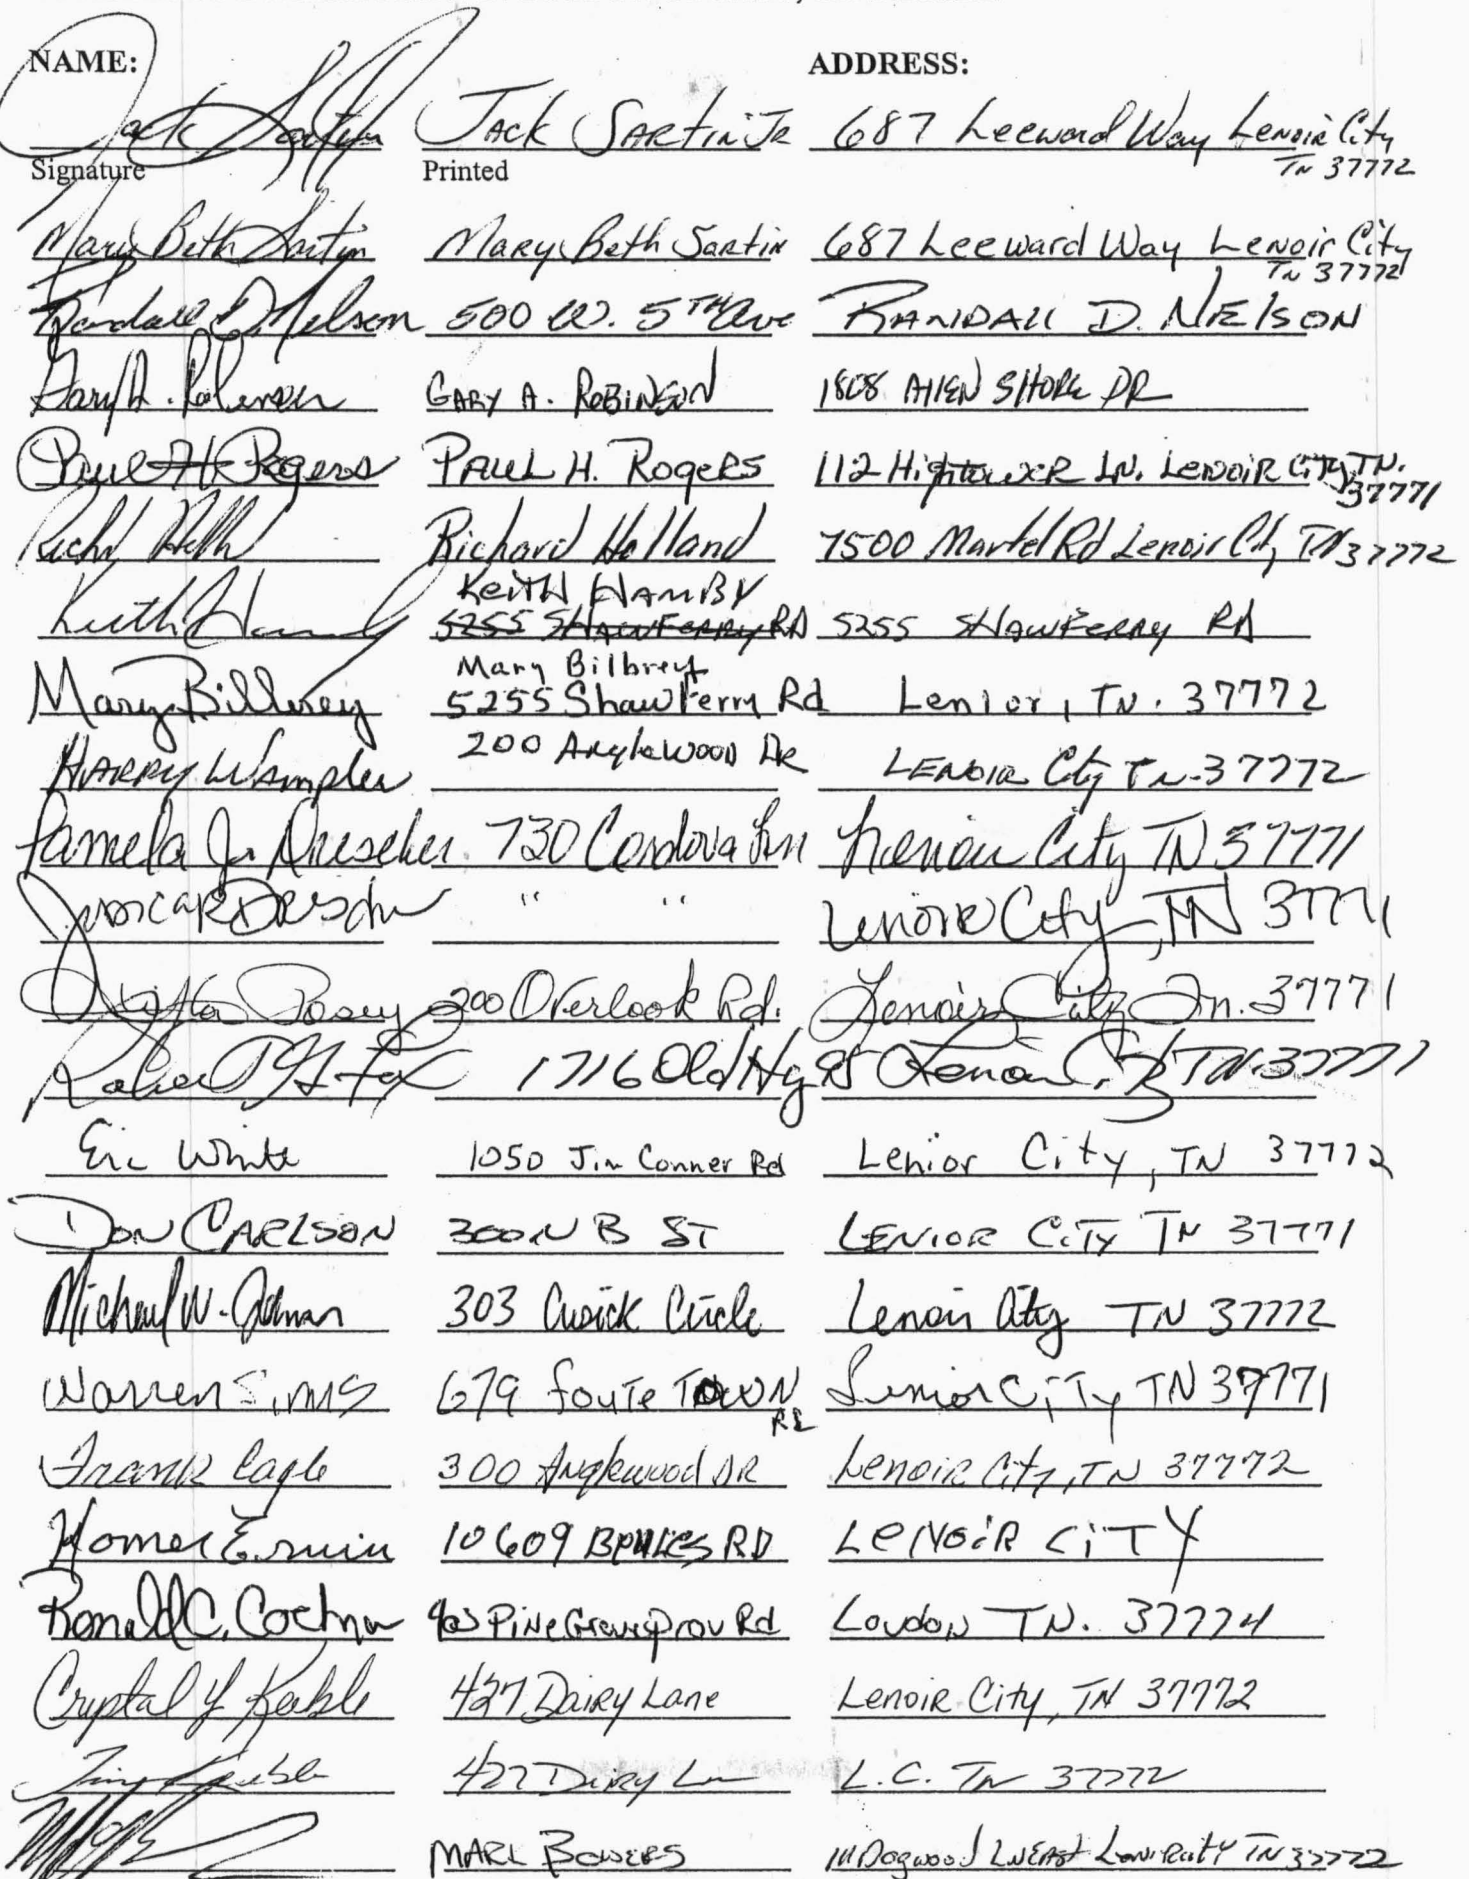 NAME: ADDRESS:
Jack Sartin JACK SARTIN JR 687 Leeward Way Lenoir City
Signature Printed TN 37772
Mary Beth Sartin Mary Beth Sartin 687 Leeward Way Lenoir City
TN 37772
Randall D. Nelson 500 W. 5TH Ave RANDALL D. NELSON
Gary A. Robinson GARY A. ROBINSON 1808 ALLEN SHORE DR
Paul H. Rogers PAUL H. ROGERS 112 Hightower LN. LENOIR CITY, TN.
37771
Richard Holland 7500 Martel Rd Lenoir City TN 37772
KEITH HAMBY
Keith 5255 SHAWFERRY RD 5255 SHAWFERRY RD
Mary Bilbrey
Mary Bilbrey 5255 Shaw Ferry Rd Lenior, TN. 37772
200 Anglewood DR
HARRY Wampler LENOIR City TN. 37772
Pamela J. Drescher 730 Cordova Lenoir City TN 37771
" " Lenoir City, TN 37771
Posey 200 Overlook Rd. Lenoir City Tn. 37771
1716 Old Hy 95 Lenoir City TN 37771
Eric White 1050 Jim Conner Rd Lenior City, TN 37772
DON CARLSON 300 N B ST LENIOR CITY TN 37771
Michael W. 303 Cusick Circle Lenoir City TN 37772
Warren Sims 679 Foute TOWN Lenior CiTy TN 37771
RD
Frank Cagle 300 Anglewood DR Lenoir City, TN 37772
Homer Erwin 10609 RD LENOIR CiTY
Ronald C. Rd Loudon TN. 37774
Crystal Y. Keeble 427 Dairy Lane Lenoir City, TN 37772
Keeble 427 Dairy Ln L.C. TN 37772
MARK BOWERS 111 Dogwood TN 37772